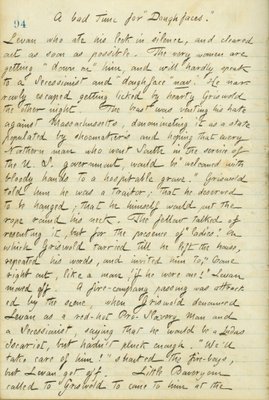 94
A bad Time for "Doughfaces."
Levan who ate his leek in silence, and cleared
out as soon as possible. The very women are
getting "down on" him, and will hardly speak
to a "Secessionist" and "doughface" man. He nar-
rowly escaped getting licked by hearty Griswold
the other night. The was venting his hate
against Massachusetts, denominating it as a state
populated by shoemakers and hoping that every
Northern man who went South in the service of
the U S. government, would be "welcomed with
bloody hands to a hospitable grave." Griswold
told him he was a traitor; that he deserved
to be hanged; that he himself would put the
rope round his neck. The fellow talked of
resenting it, but for the presence of "ladies." On
which Griswold tarried till he left the house,
repeated his words, and invited him to, "Come
right out, like a man, if he were one!" Levan
moved off. A fire-company passing was attract-
ed by the scene, when Griswold denounced
Levan as a red-hot Pro-Slavery man and
a Secessionist, saying that he would be a Judas
Iscariot, but hadn't pluck enough. "We'd
take care of him!" shouted the fire-boys,
but Levan got off. Little
called to Griswold to come to him at the